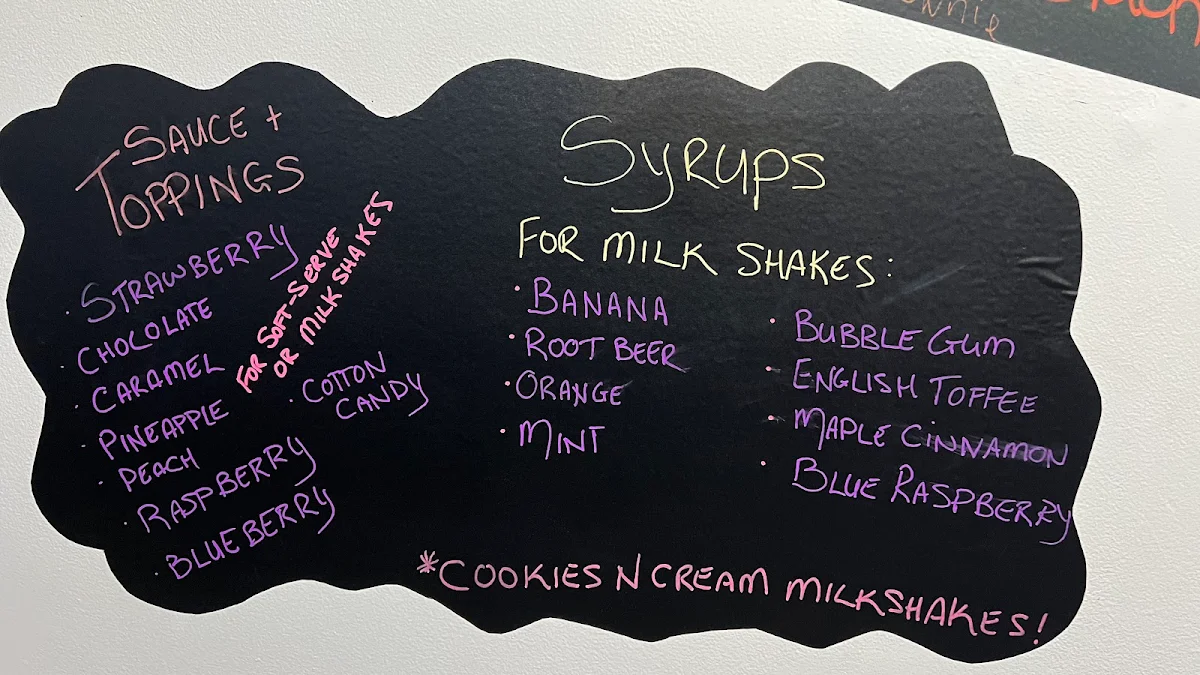 SAUCE +
TOPPINGS
· STRAWBERRY
· CHOCOLATE
· CARAMEL
· PINEAPPLE
· PEACH
· RASPBERRY
· BLUEBERRY
FOR SOFT-SERVE
OR MILKSHAKES
· COTTON
CANDY
SYRUPS
FOR MILK SHAKES:
· BANANA
· ROOT BEER
· ORANGE
· MINT
· BUBBLE GUM
· ENGLISH TOFFEE
· MAPLE CINNAMON
· BLUE RASPBERRY
*COOKIES N CREAM MILKSHAKES!